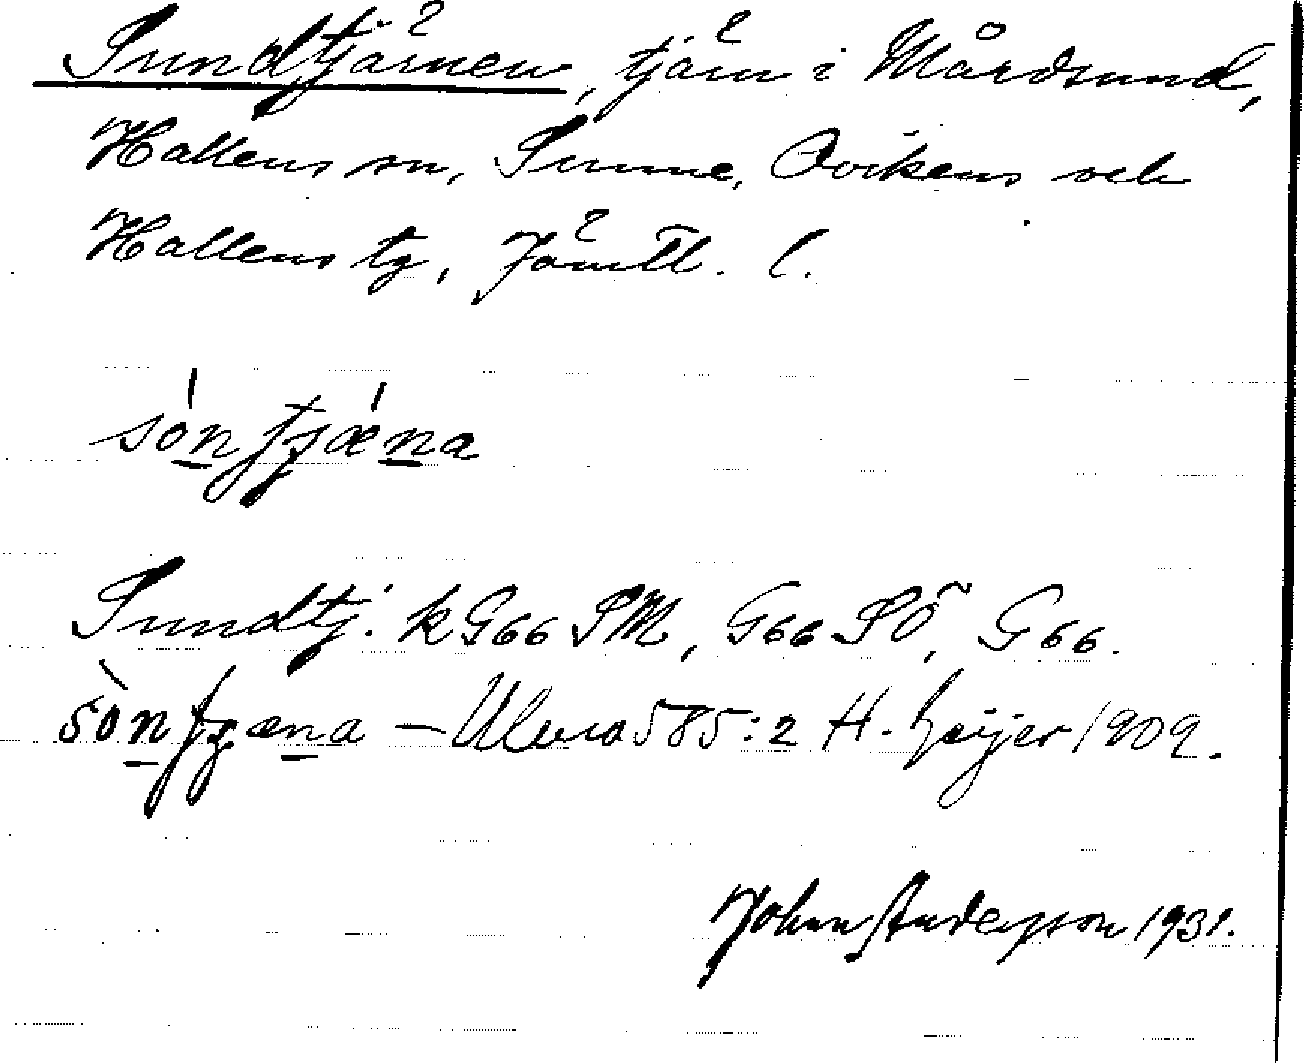 Sundtjärnen, tjärn i Mårdsund,
Hallens sn, Sunne, Ovikens och
Hallens tg, Jämtl. l.
sòn tjǽna
Sundtj. k G66 SM, G66 SÖ, G66.
sòn tjæna — Ulma 585:2 H. Geijer 1909.
John Andersson 1931.